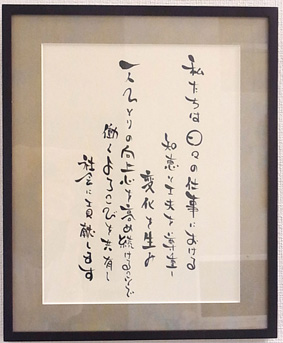 私たちは日々の仕事における
知恵と工夫を尊重し
変化を生み
一人ひとりの向上心を高め続けることで
働くよろこびを共有し
社会に貢献します